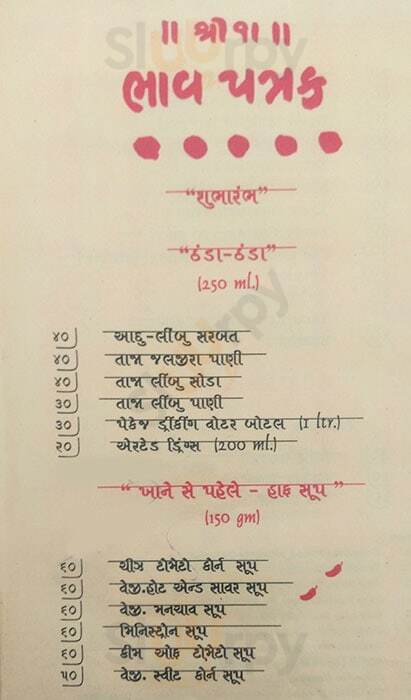 ॥ શ્રી ૧। ॥
ભાવ પત્રક
"શુભારંભ"
"ઠંડા-ઠંડા"
(250 ml.)
૪૦ આદુ-લીંબુ સરબત
૪૦ તાજા જલજીરા પાણી
૪૦ તાજા લીંબુ સોડા
૩૦ તાજા લીંબુ પાણી
૩૦ પેકેજ ડ્રીંકીંગ વોટર બોટલ (1 ltr.)
૨૦ એરટેડ ડ્રિંગ્સ (200 ml.)
" ખાને સે પહેલે - હાફ સૂપ "
(150 gm)
૬૦ ચીઝ ટોમેટો કોર્ન સૂપ
૬૦ વેજી.હોટ એન્ડ સાવર સૂપ
૬૦ વેજી. મનચાવ સૂપ
૬૦ મિનિસ્ટ્રોન સૂપ
૬૦ ક્રીમ ઓફ ટોમેટો સૂપ
૫૦ વેજી. સ્વીટ કોર્ન સૂપ